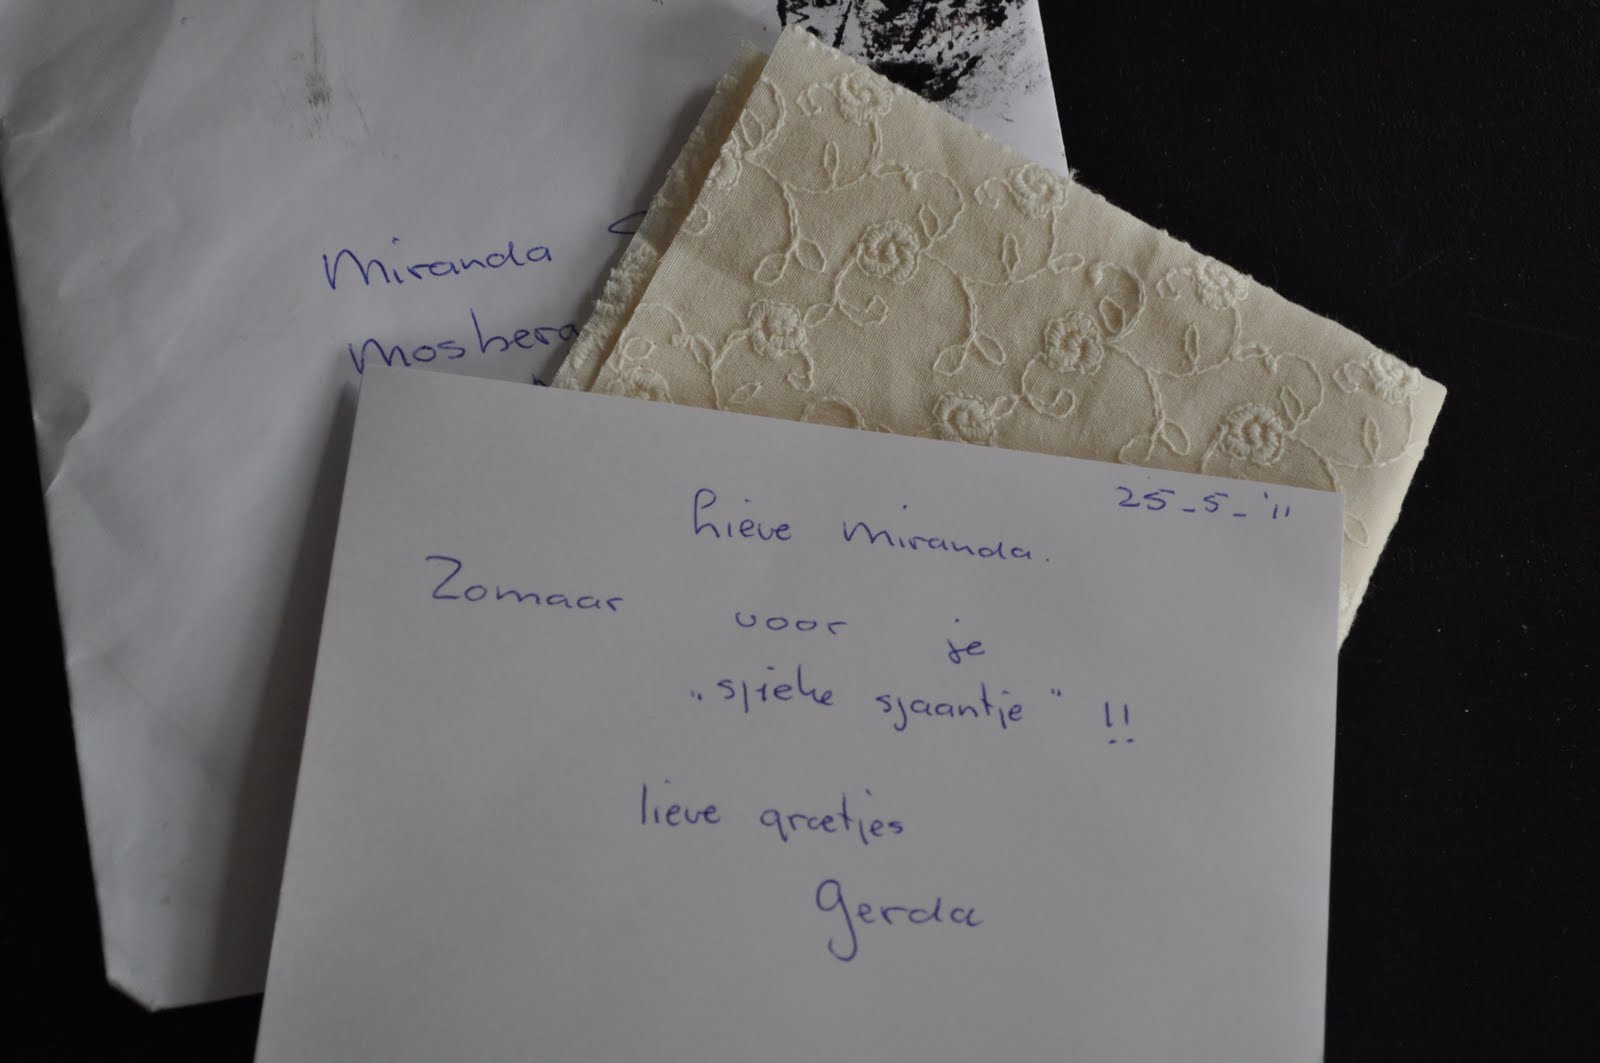 Miranda
Mosberg
25-5-'11
Lieve Miranda.
Zomaar voor je
"sjieke sjaantje" !!
lieve groetjes
Gerda